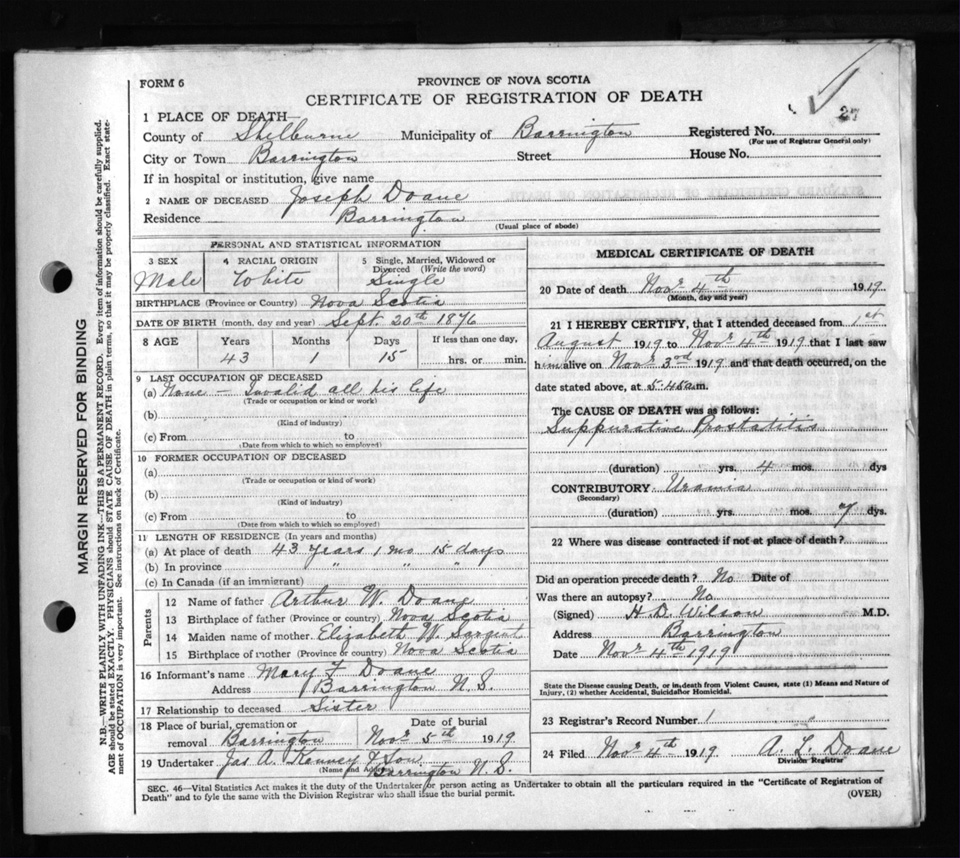 FORM 6
PROVINCE OF NOVA SCOTIA
CERTIFICATE OF REGISTRATION OF DEATH
27
1 PLACE OF DEATH—
County of Shelburne Municipality of Barrington Registered No.
(For use of Registrar General only)
City or Town Barrington Street House No.
If in hospital or institution, give name
2 NAME OF DECEASED Joseph Doane
Residence Barrington
(Usual place of abode)
PERSONAL AND STATISTICAL INFORMATION
3 SEX 4 RACIAL ORIGIN 5 Single, Married, Widowed or
Divorced (Write the word)
Male White Single
BIRTHPLACE (Province or Country) Nova Scotia
DATE OF BIRTH (month, day and year) Sept. 20th 1876
8 AGE Years Months Days If less than one day,
43 1 15 hrs. or min.
9 LAST OCCUPATION OF DECEASED
(a) None — Invalid all his life
(Trade or occupation or kind of work)
(b)
(Kind of industry)
(c) From to
(Date from which to which so employed)
10 FORMER OCCUPATION OF DECEASED
(a)
(Trade or occupation or kind of work)
(b)
(Kind of industry)
(c) From to
(Date from which to which so employed)
11 LENGTH OF RESIDENCE (In years and months)
(a) At place of death 43 years 1 mo 15 days
(b) In province " " "
(c) In Canada (if an immigrant)
Parents
12 Name of father Arthur W. Doane
13 Birthplace of father (Province or country) Nova Scotia
14 Maiden name of mother Elizabeth W. Sargent
15 Birthplace of mother (Province or country) Nova Scotia
16 Informant's name Mary F Doane
Address Barrington N.S.
17 Relationship to deceased Sister
18 Place of burial, cremation or Date of burial
removal Barrington Novr 5th 1919
19 Undertaker Jas A. Kenney & Son
(Name and Address) Barrington N.S.
MEDICAL CERTIFICATE OF DEATH
20 Date of death Novr 4th 1919
(Month, day and year)
21 I HEREBY CERTIFY, that I attended deceased from 1st
August 1919 to Novr 4th 1919 that I last saw
him alive on Novr 3rd 1919 and that death occurred, on the
date stated above, at 5.45 a.m.
The CAUSE OF DEATH was as follows:
Suppurative Prostatitis
(duration) yrs. 4 mos. dys
CONTRIBUTORY Uramia
(Secondary)
(duration) yrs. mos. 7 dys.
22 Where was disease contracted if not at place of death?
Did an operation precede death? No Date of
Was there an autopsy? No
(Signed) H D. Wilson M.D.
Address Barrington
Date Novr 4th 1919
State the Disease causing Death, or in death from Violent Causes, state (1) Means and Nature of
Injury, (2) whether Accidental, Suicidal or Homicidal.
23 Registrar's Record Number 1
24 Filed Novr 4th 1919 A. L. Doane
Division Registrar
SEC. 46—Vital Statistics Act makes it the duty of the Undertaker or person acting as Undertaker to obtain all the particulars required in the "Certificate of Registration of
Death" and to fyle the same with the Division Registrar who shall issue the burial permit.
(OVER)
MARGIN RESERVED FOR BINDING
N.B.—WRITE PLAINLY WITH UNFADING INK—THIS IS A PERMANENT RECORD. Every item of information should be carefully supplied.
AGE should be stated EXACTLY. PHYSICIANS should STATE CAUSE OF DEATH in plain terms, so that it may be properly classified. Exact state-
ment of OCCUPATION is very important. See instructions on back of Certificate.